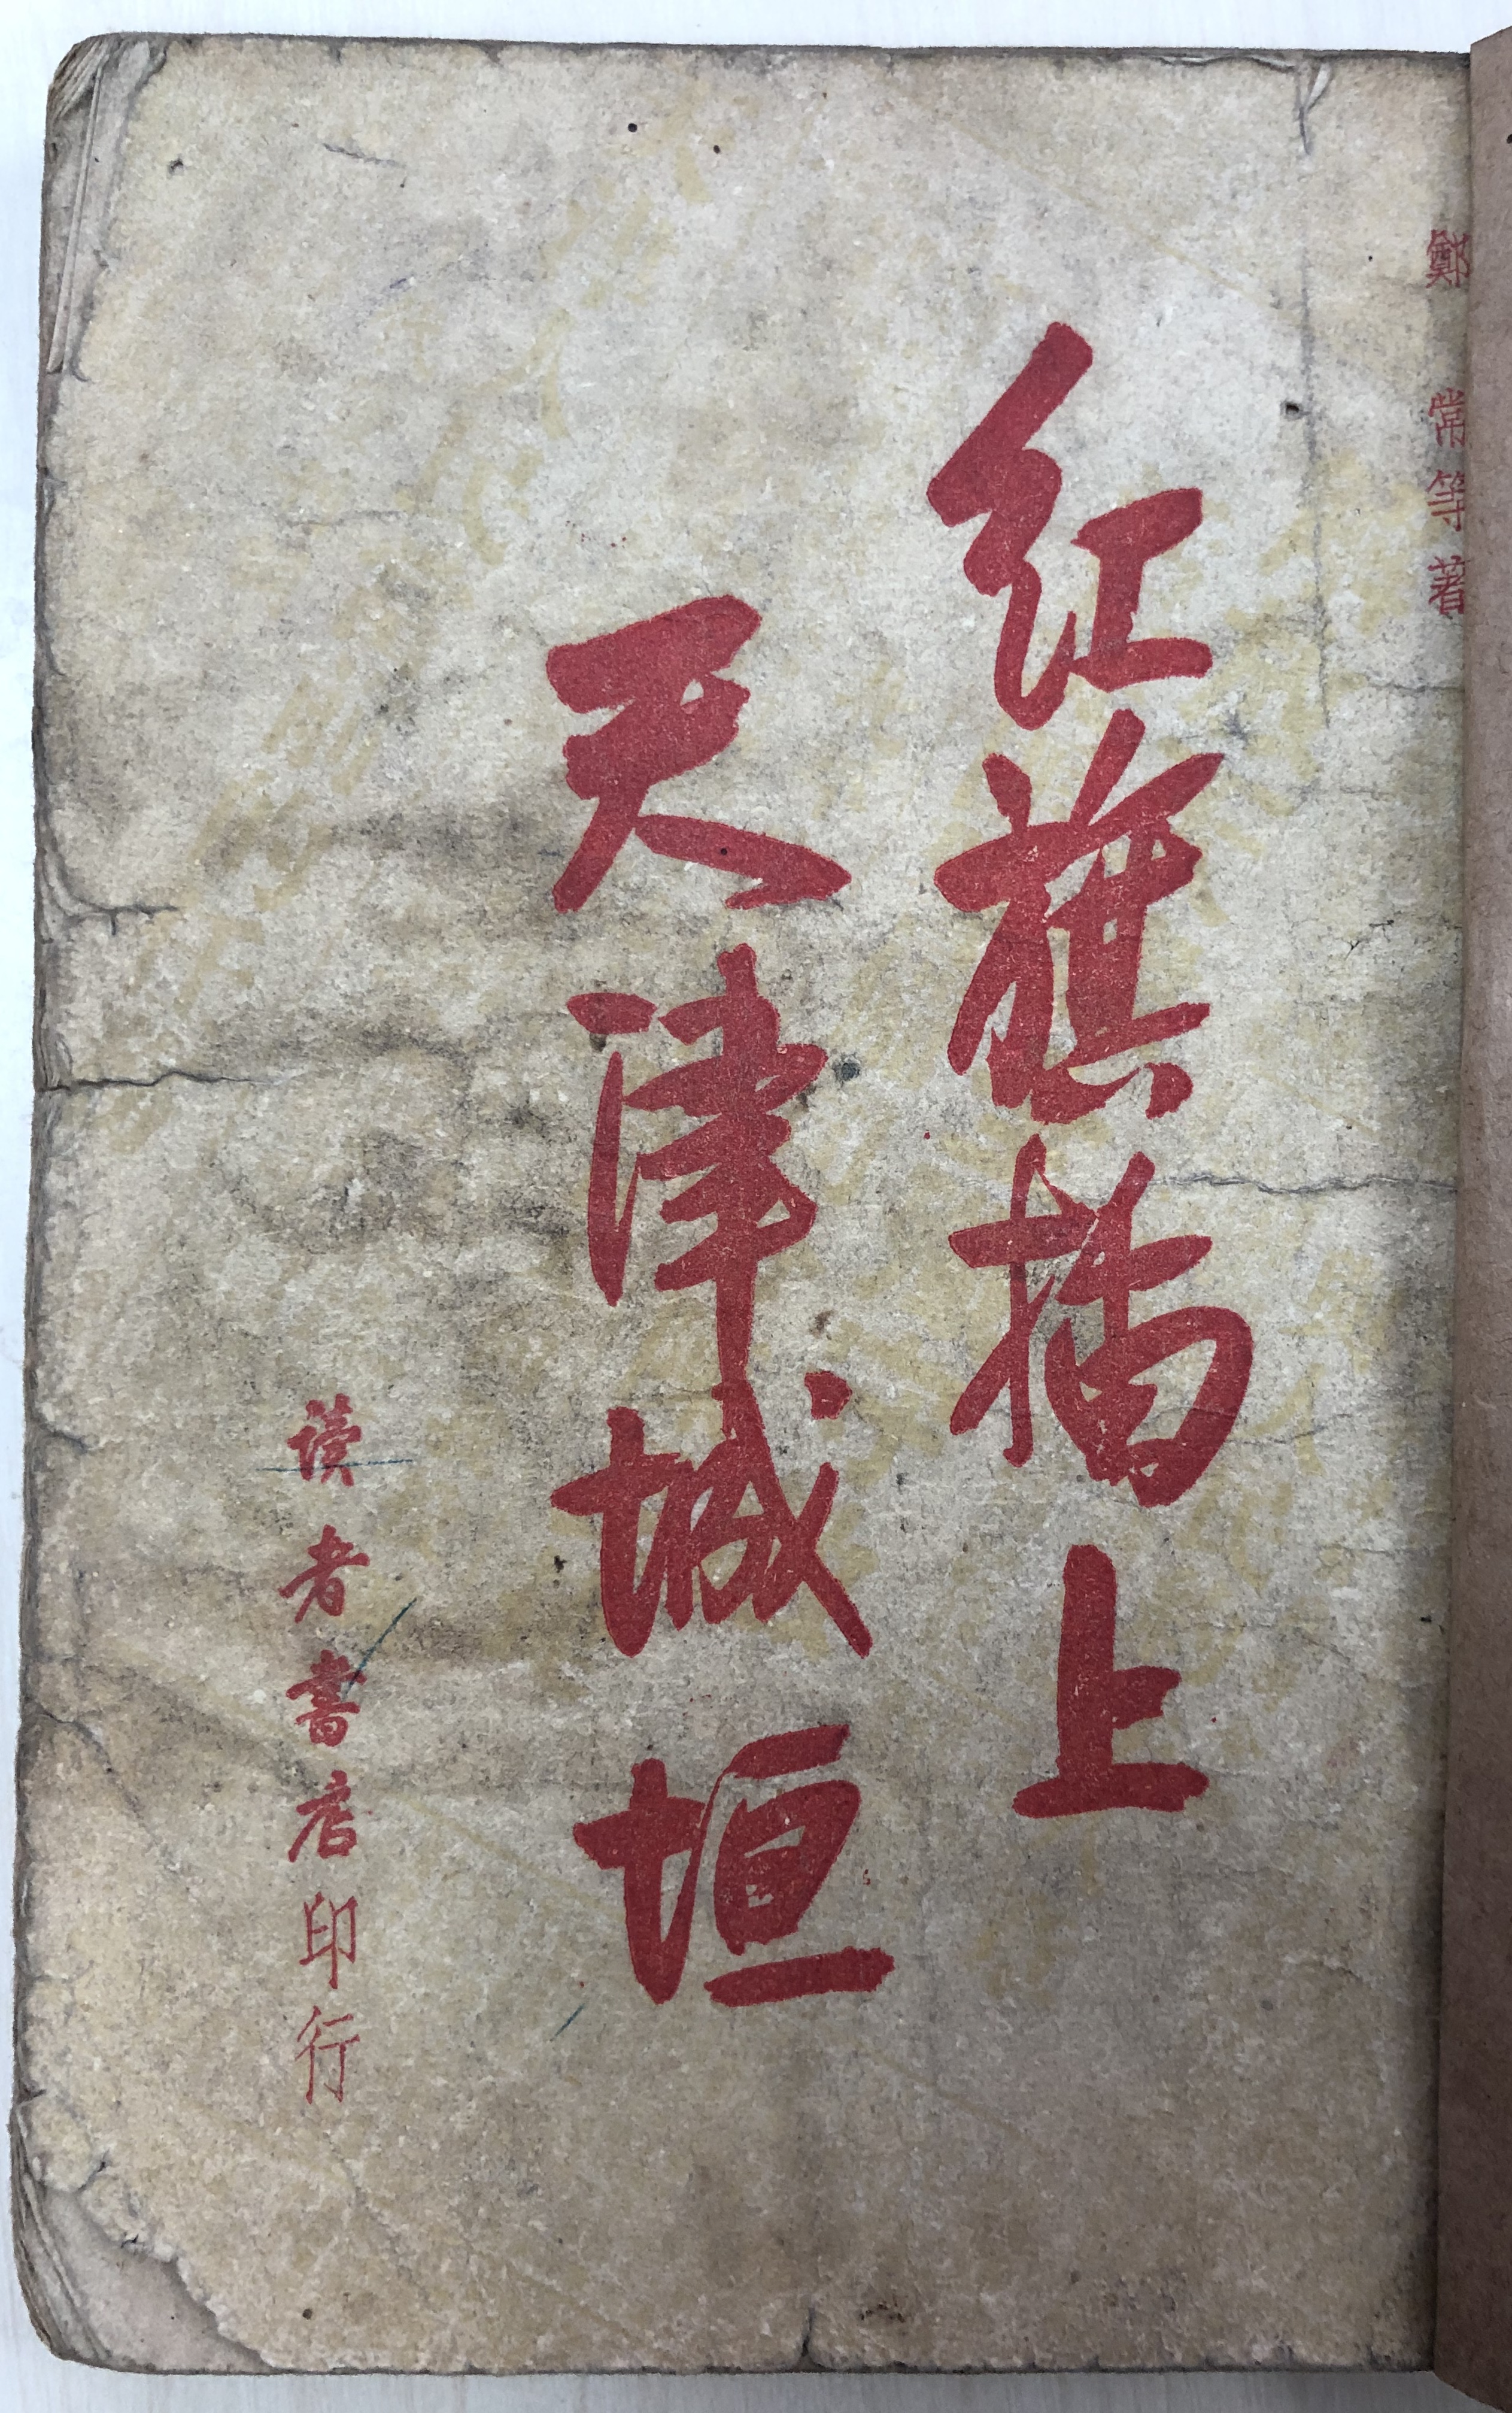 鄭常等著
红旗插上
天津城垣
读者書店印行